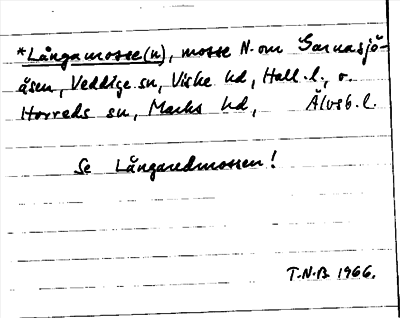 *Långamosse(n), mosse N. om Sarnasjö-
åsen, Veddige sn, Viske hd, Hall. l., o.
Horreds sn, Marks hd, Älvsb. l.
Se Långaredmossen!
T.N.B. 1966.